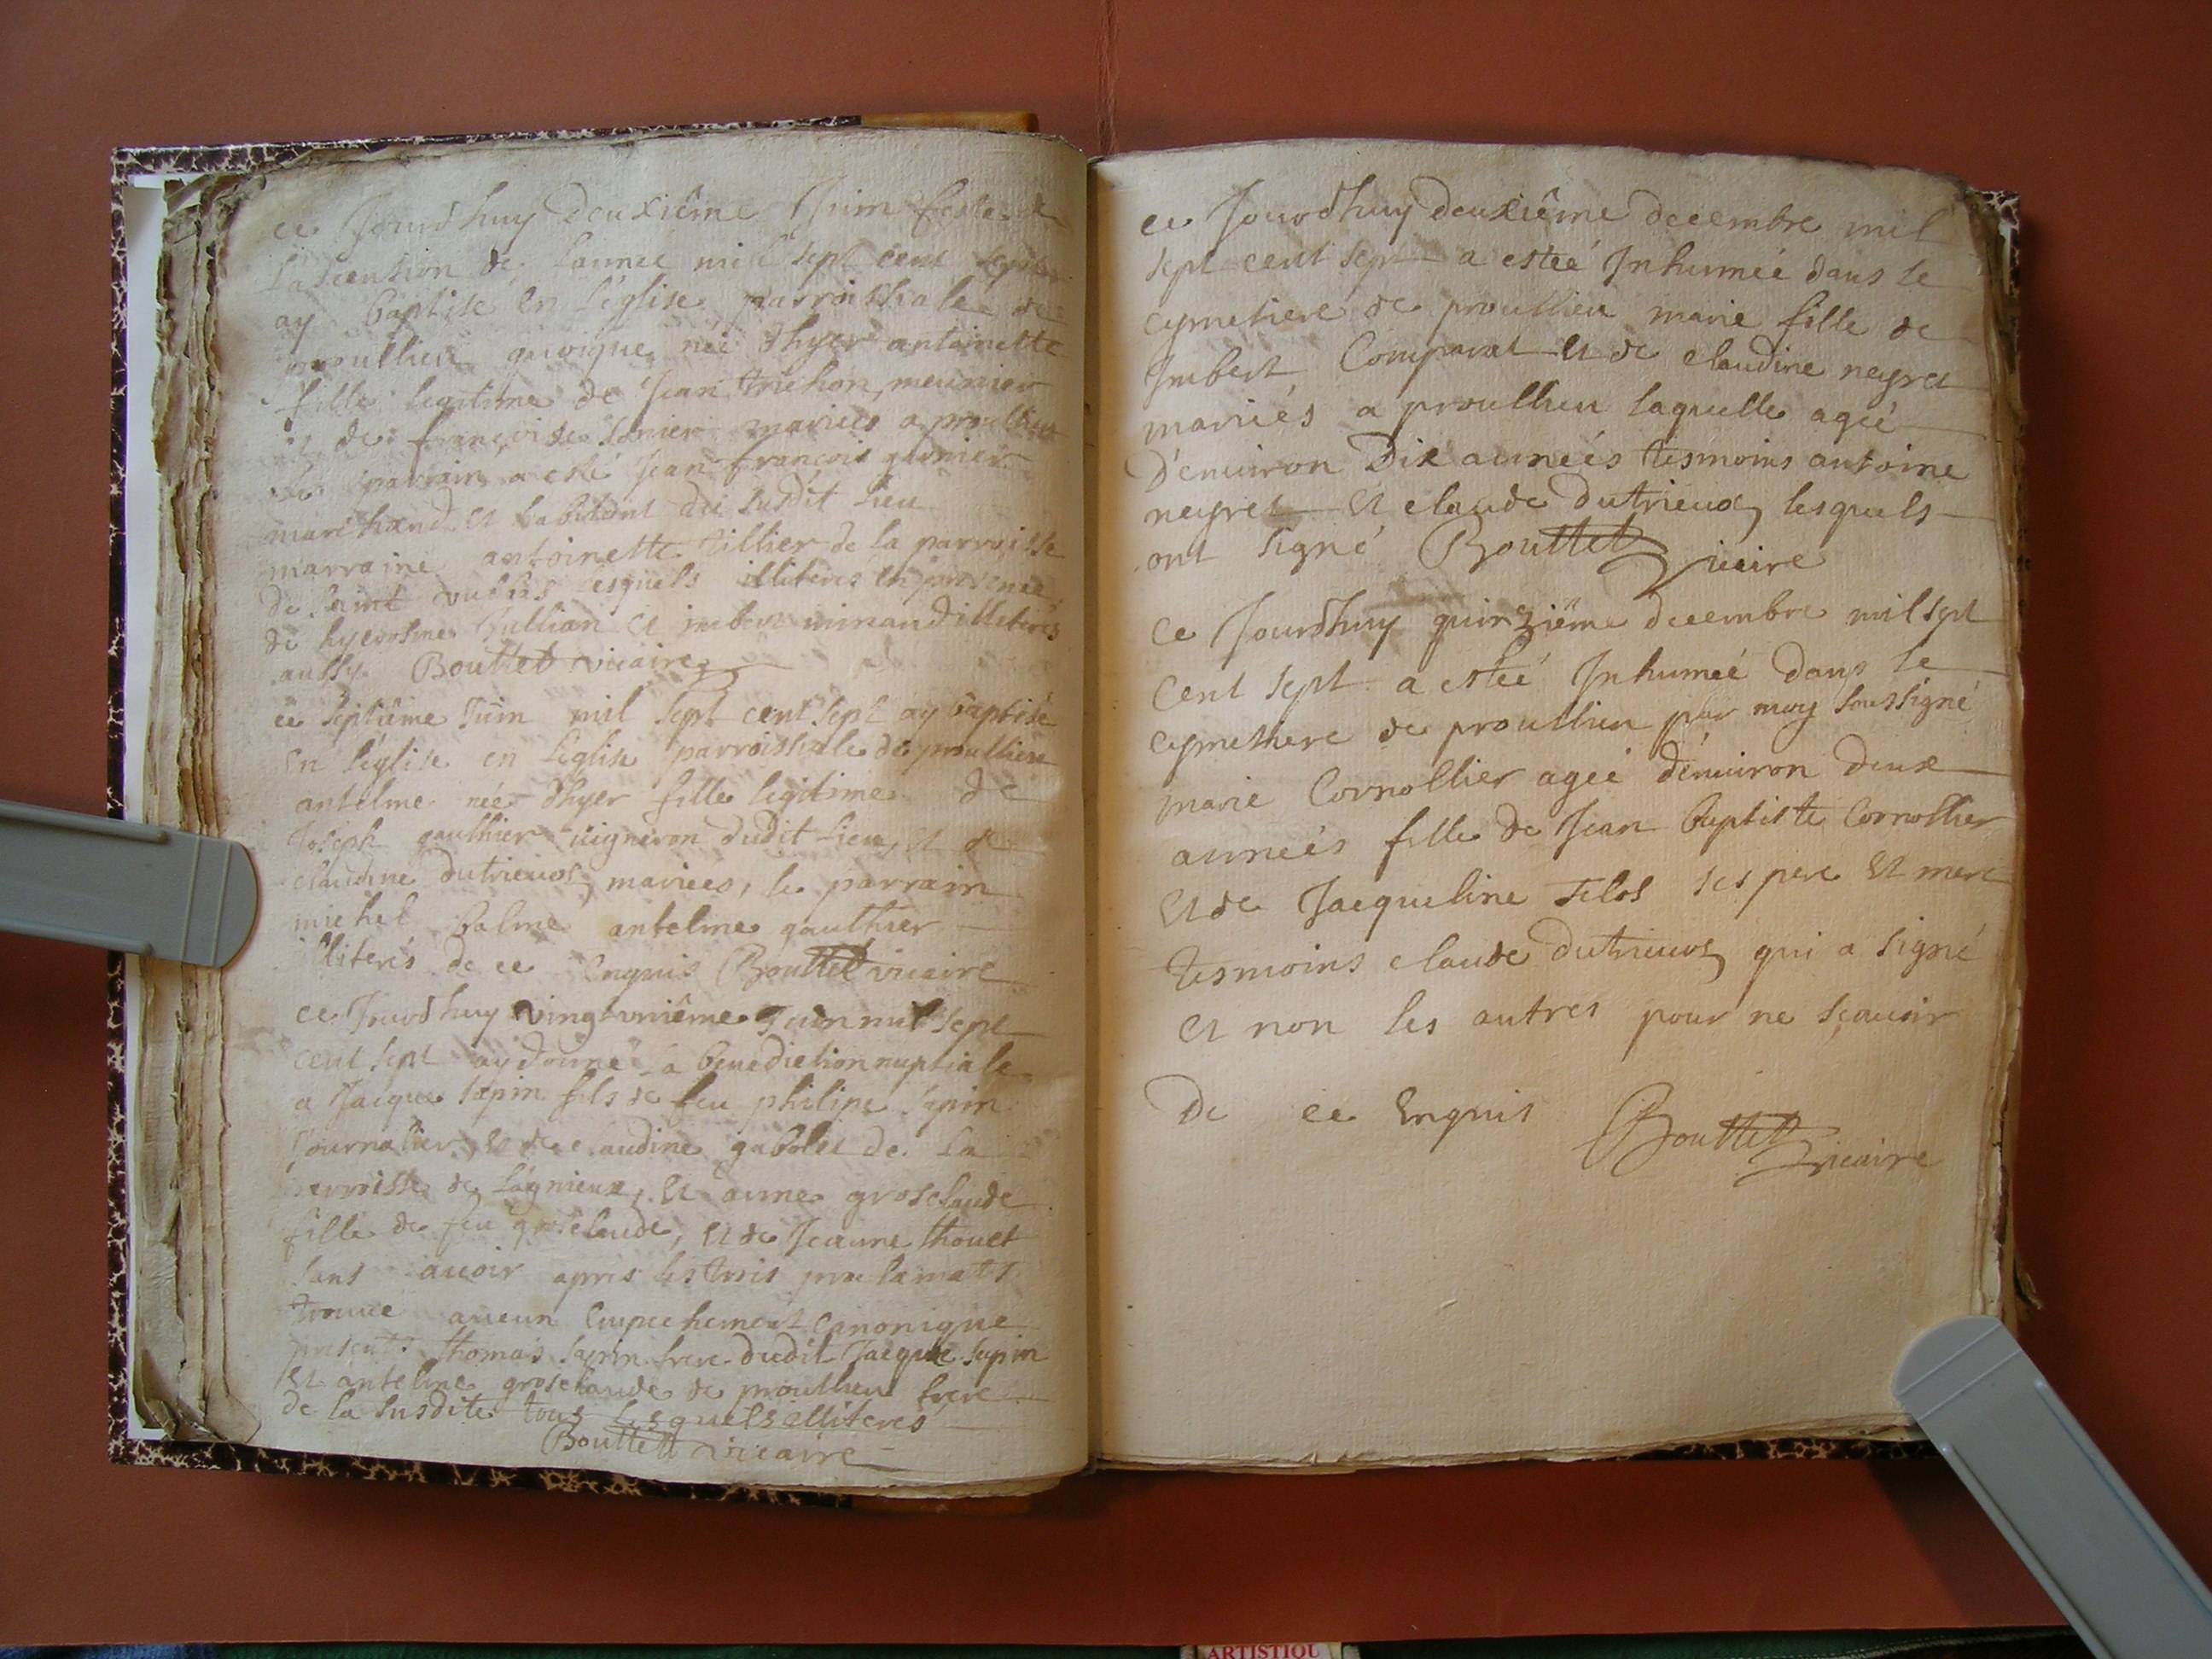 ce Jourdhuy deuxiême Juin feste de
lascention de lannee mil sept cent sept
ay baptisé en l'église parroisshiale de
proullieu quoique née d'hyer antoinette
fille legitime de Jean trichon meunier
et de françoise mariees a proullieu
le parrain a esté Jean françois garnier
marchand et habitant du susdit lieu
marraine antoinette tillier de la parroisse
de Saint vulbas lesquels illiteres en presence
de hyerosme Jullian et imbert minand illiteres
aussy Bouttet vicaire
ce septiême Juin mil sept cent sept ay baptisé
en l'église en l'église parroisshiale de proullieu
antelme née d'hyer fille legitime de
Joseph gaulthier vigneron dudit lieu, et de
claudine dutrieux mariees, le parrain
michel balme antelme gaulthier
illiterés de ce Enquis Bouttet vicaire
ce Jourdhuy vingt uniême Juin mil sept
cent sept ay donné la benediction nuptiale
a Jacque sapin fils de feu philipe sapin
Journalier, et de claudine gabolet de la
parroisse de lagnieux, et anne grosclaude
fille de feu grosclaude, et de Jeanne thouet
sans avoir apres les trois proclamats
trouvé aucun Empechement Canonique
presents thomas sapin frere dudit Jacque sapin
et antelme grosclaude de proullieu frere
de la susdite tous lesquels illiteres
Bouttet vicaire
ce Jourdhuy deuxiême decembre mil
sept cent sept a esteé Inhumée dans le
cymetiere de proullieu marie fille de
Imbert Comparat et de claudine neyret
mariés a proullieu laquelle ageé
d'environ Dix anneés tesmoins antoine
neyret et claude dutrieux lesquels
ont signé Bouttet vicaire
Ce Jourdhuy quinziême decembre mil sept
Cent sept a esteé Inhumeé dans le
cymethiere de proullieu par moy soussigné
marie Cornollier ageé d'environ deux
anneés fille de Jean baptiste Cornollier
et de Jacqueline ses pere et mere
tesmoins claude dutrieux qui a signé
et non les autres pour ne sçavoir
De ce Enquis Bouttet vicaire
ARTISTIQU